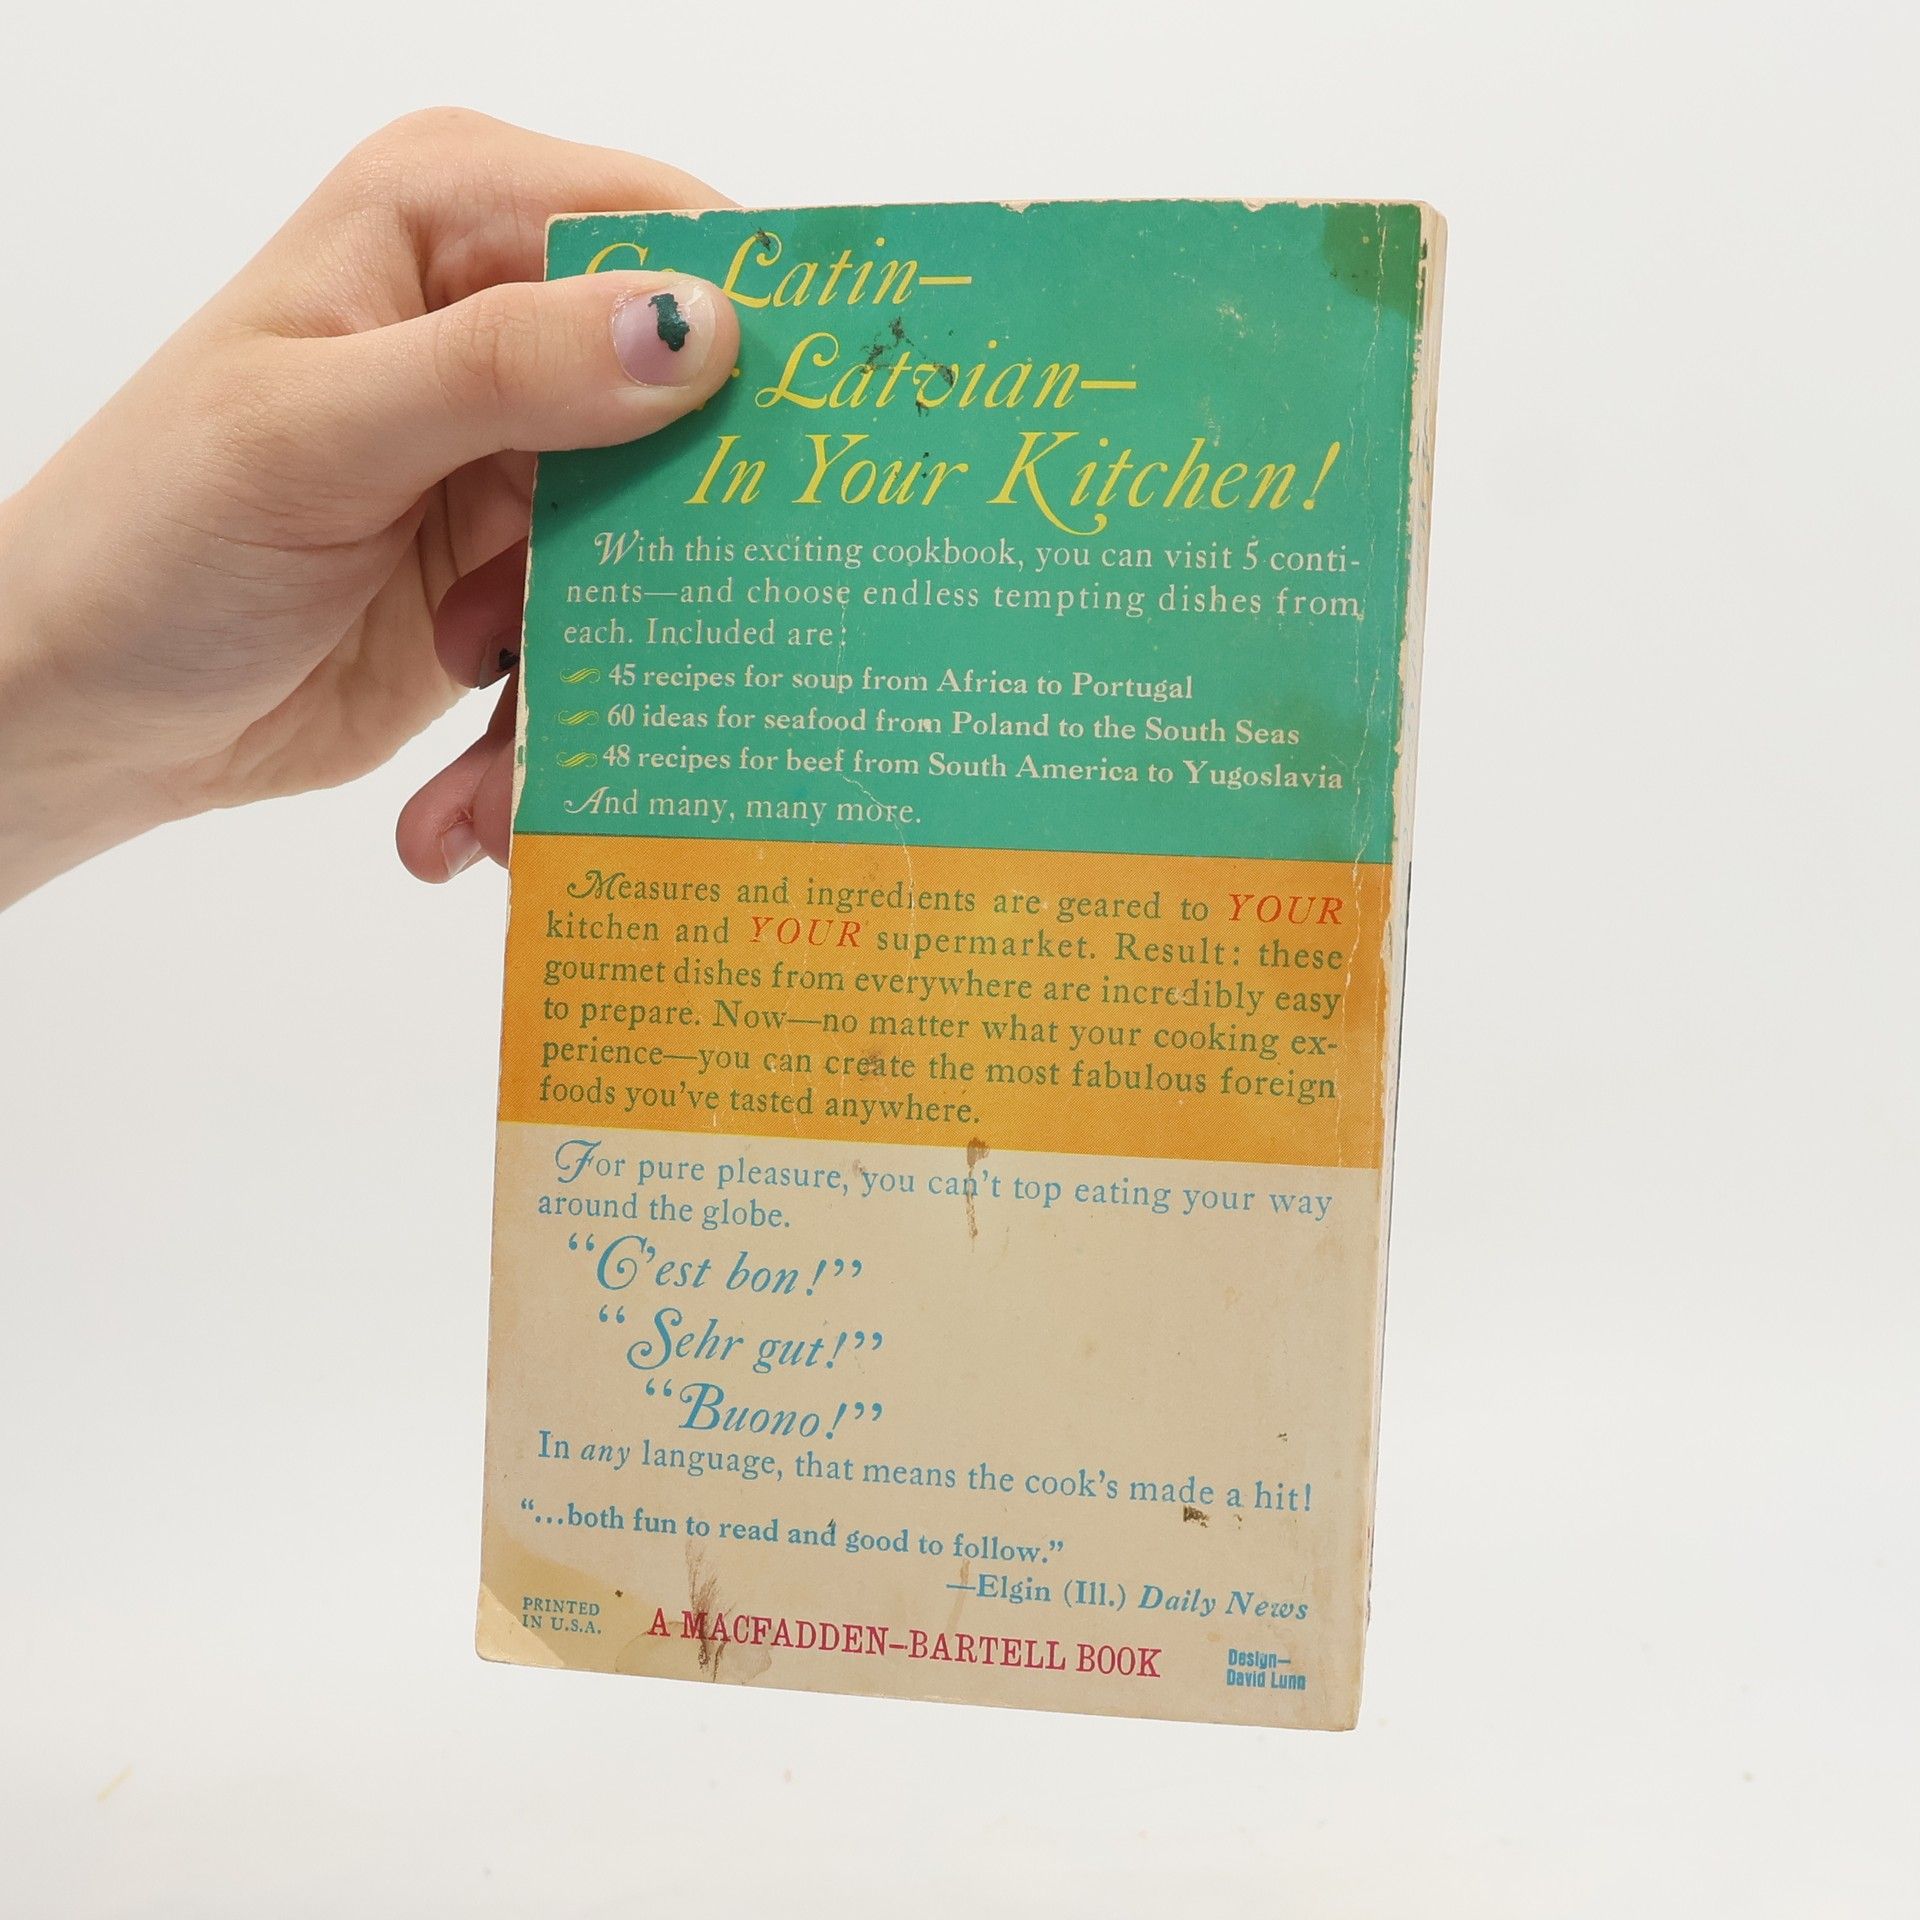 Go Latin—
Latvian—
In Your Kitchen!
With this exciting cookbook, you can visit 5 conti-
nents—and choose endless tempting dishes from
each. Included are:
45 recipes for soup from Africa to Portugal
60 ideas for seafood from Poland to the South Seas
48 recipes for beef from South America to Yugoslavia
And many, many more.
Measures and ingredients are geared to YOUR
kitchen and YOUR supermarket. Result: these
gourmet dishes from everywhere are incredibly easy
to prepare. Now—no matter what your cooking ex-
perience—you can create the most fabulous foreign
foods you've tasted anywhere.
For pure pleasure, you can't top eating your way
around the globe.
“C'est bon!”
“Sehr gut!”
“Buono!”
In any language, that means the cook's made a hit!
“...both fun to read and good to follow.”
—Elgin (Ill.) Daily News
PRINTED
IN U.S.A.
A MACFADDEN–BARTELL BOOK
Design—
David Lunn